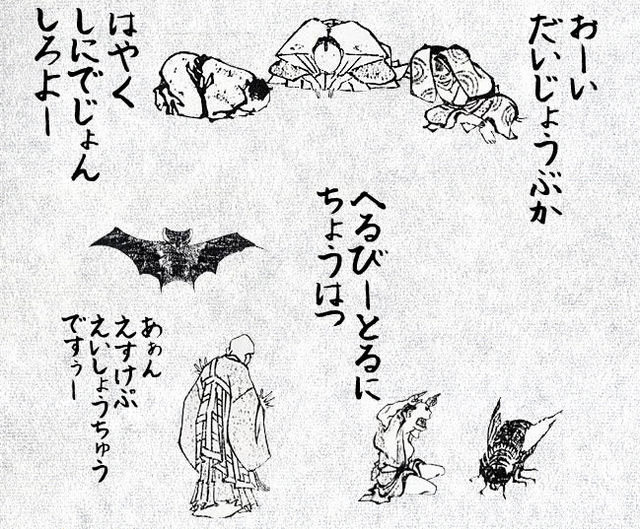 おーい
だいじょうぶか
はやく
しにでじょん
しろよー
へるびーとるに
ちょうはつ
あぁん
えすけぷ
えいしょうちゅう
ですぅー